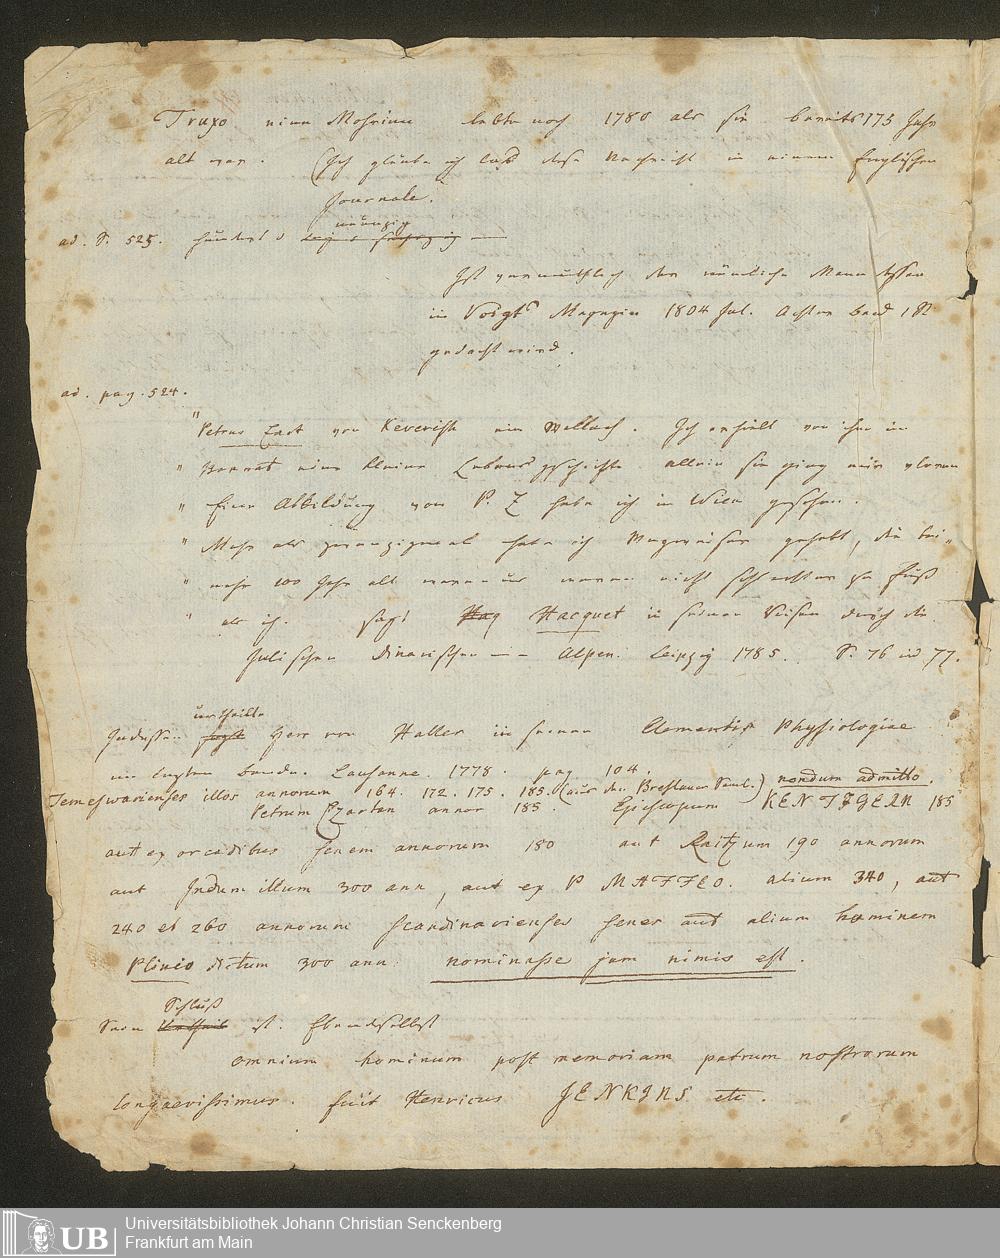 Truxo eine Mohrinn lebte noch 1780 als sie bereits 175 Jahr
alt war. (Ich glaube ich las diese Nachricht in einem Englischen
Journale.
neunzig
ad. S. 525. hundert u
Ist vermuthlich der nämliche Mann dessen
in Voigts Magazin 1804 Jul. Achter Band 1 St
gedacht wird.
ad. pag. 524.
"Petrus Czart von Keverish ein Wallach. Ich erhielt von ihm im
" Bannat eine kleine Lebensgeschichte allein sie ging mir verloren
" Eine Abbildung von P. Z habe ich in Wien gesehen.
" Mehr als zwanzigmal habe ich Wegweiser gehabt, die bei"
" nahe 100 Jahr alt waren und waren nicht schlechter zu Fuß
" als ich. sagt Hacquet in seinen Reisen durch die
Julischen Dinarischen Alpen. Leipzig 1785. S. 76 und 77.
urtheilte
Indessen Herr von Haller in seinen Elementis Physiologiae
im letzten Bande. Lausanne. 1778. pag 104.
Temeswarienses illos annorum 164. 172. 175. 185. (aus den Breslauer Saml.) nondum admitto.
Petrum Czartan annor 185. Episcopum KENTIGERN 185
aut ex orcadibus senem annorum 180 aut Raitzum 190 annorum
aut Indum illum 300 ann, aut ex P MAFFEO. alium 340, aut
240 et 260 annorum scandinavienses senes aut alium hominem
Plinio dictum 300 ann: nominasse jam nimis est.
Schluß
Sein ist. Ebendaselbst
omnium hominum post memoriam patrum nostrorum
longaevissimus. fuit Henricus JENKINS etc.
UB Universitätsbibliothek Johann Christian Senckenberg
Frankfurt am Main